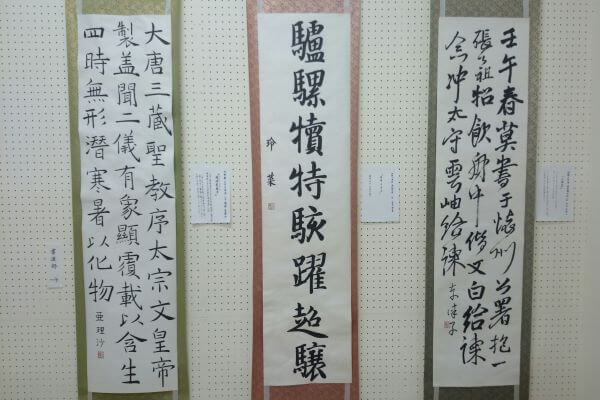 壬午春莫書于懐州公署抱一
張公祖招飲
中
文白給諫
念冲太守雲岫給諫
驢騾犢特駭躍超驤
玲菜
大唐三蔵聖教序太宗文皇帝
製盖聞二儀有象顯覆載以含生
四時無形潛寒暑以化物
亜理沙
書道部